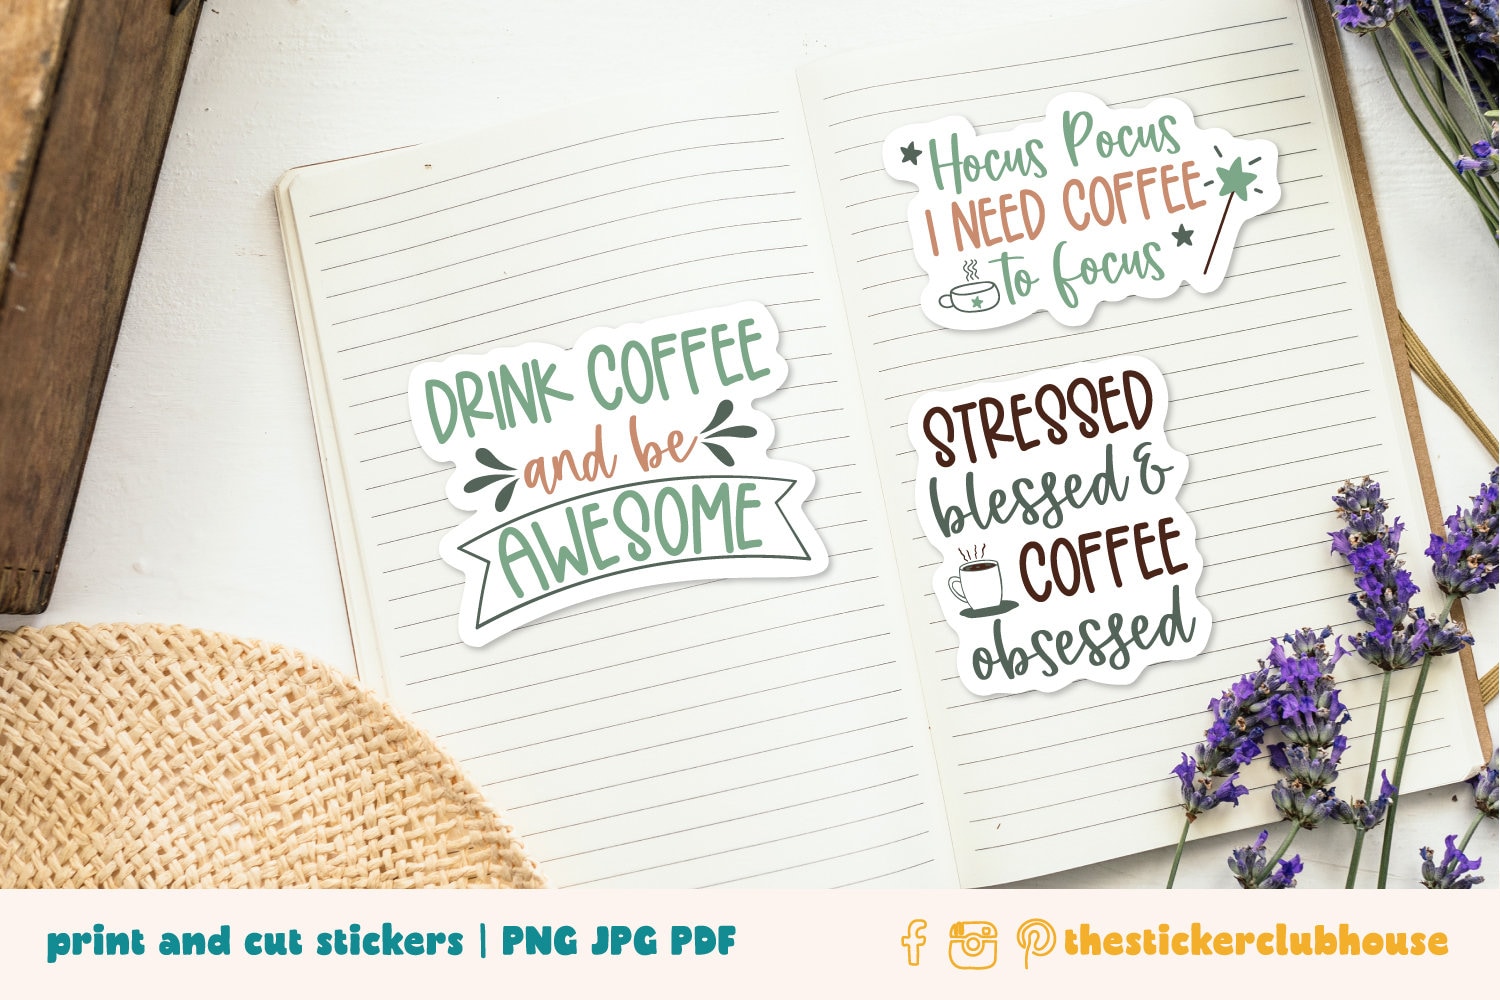 DRINK COFFEE
and be
AWESOME
Hocus Pocus
I NEED COFFEE
to focus
STRESSED
blessed &
COFFEE
obsessed
print and cut stickers | PNG JPG PDF
thestickerclubhouse